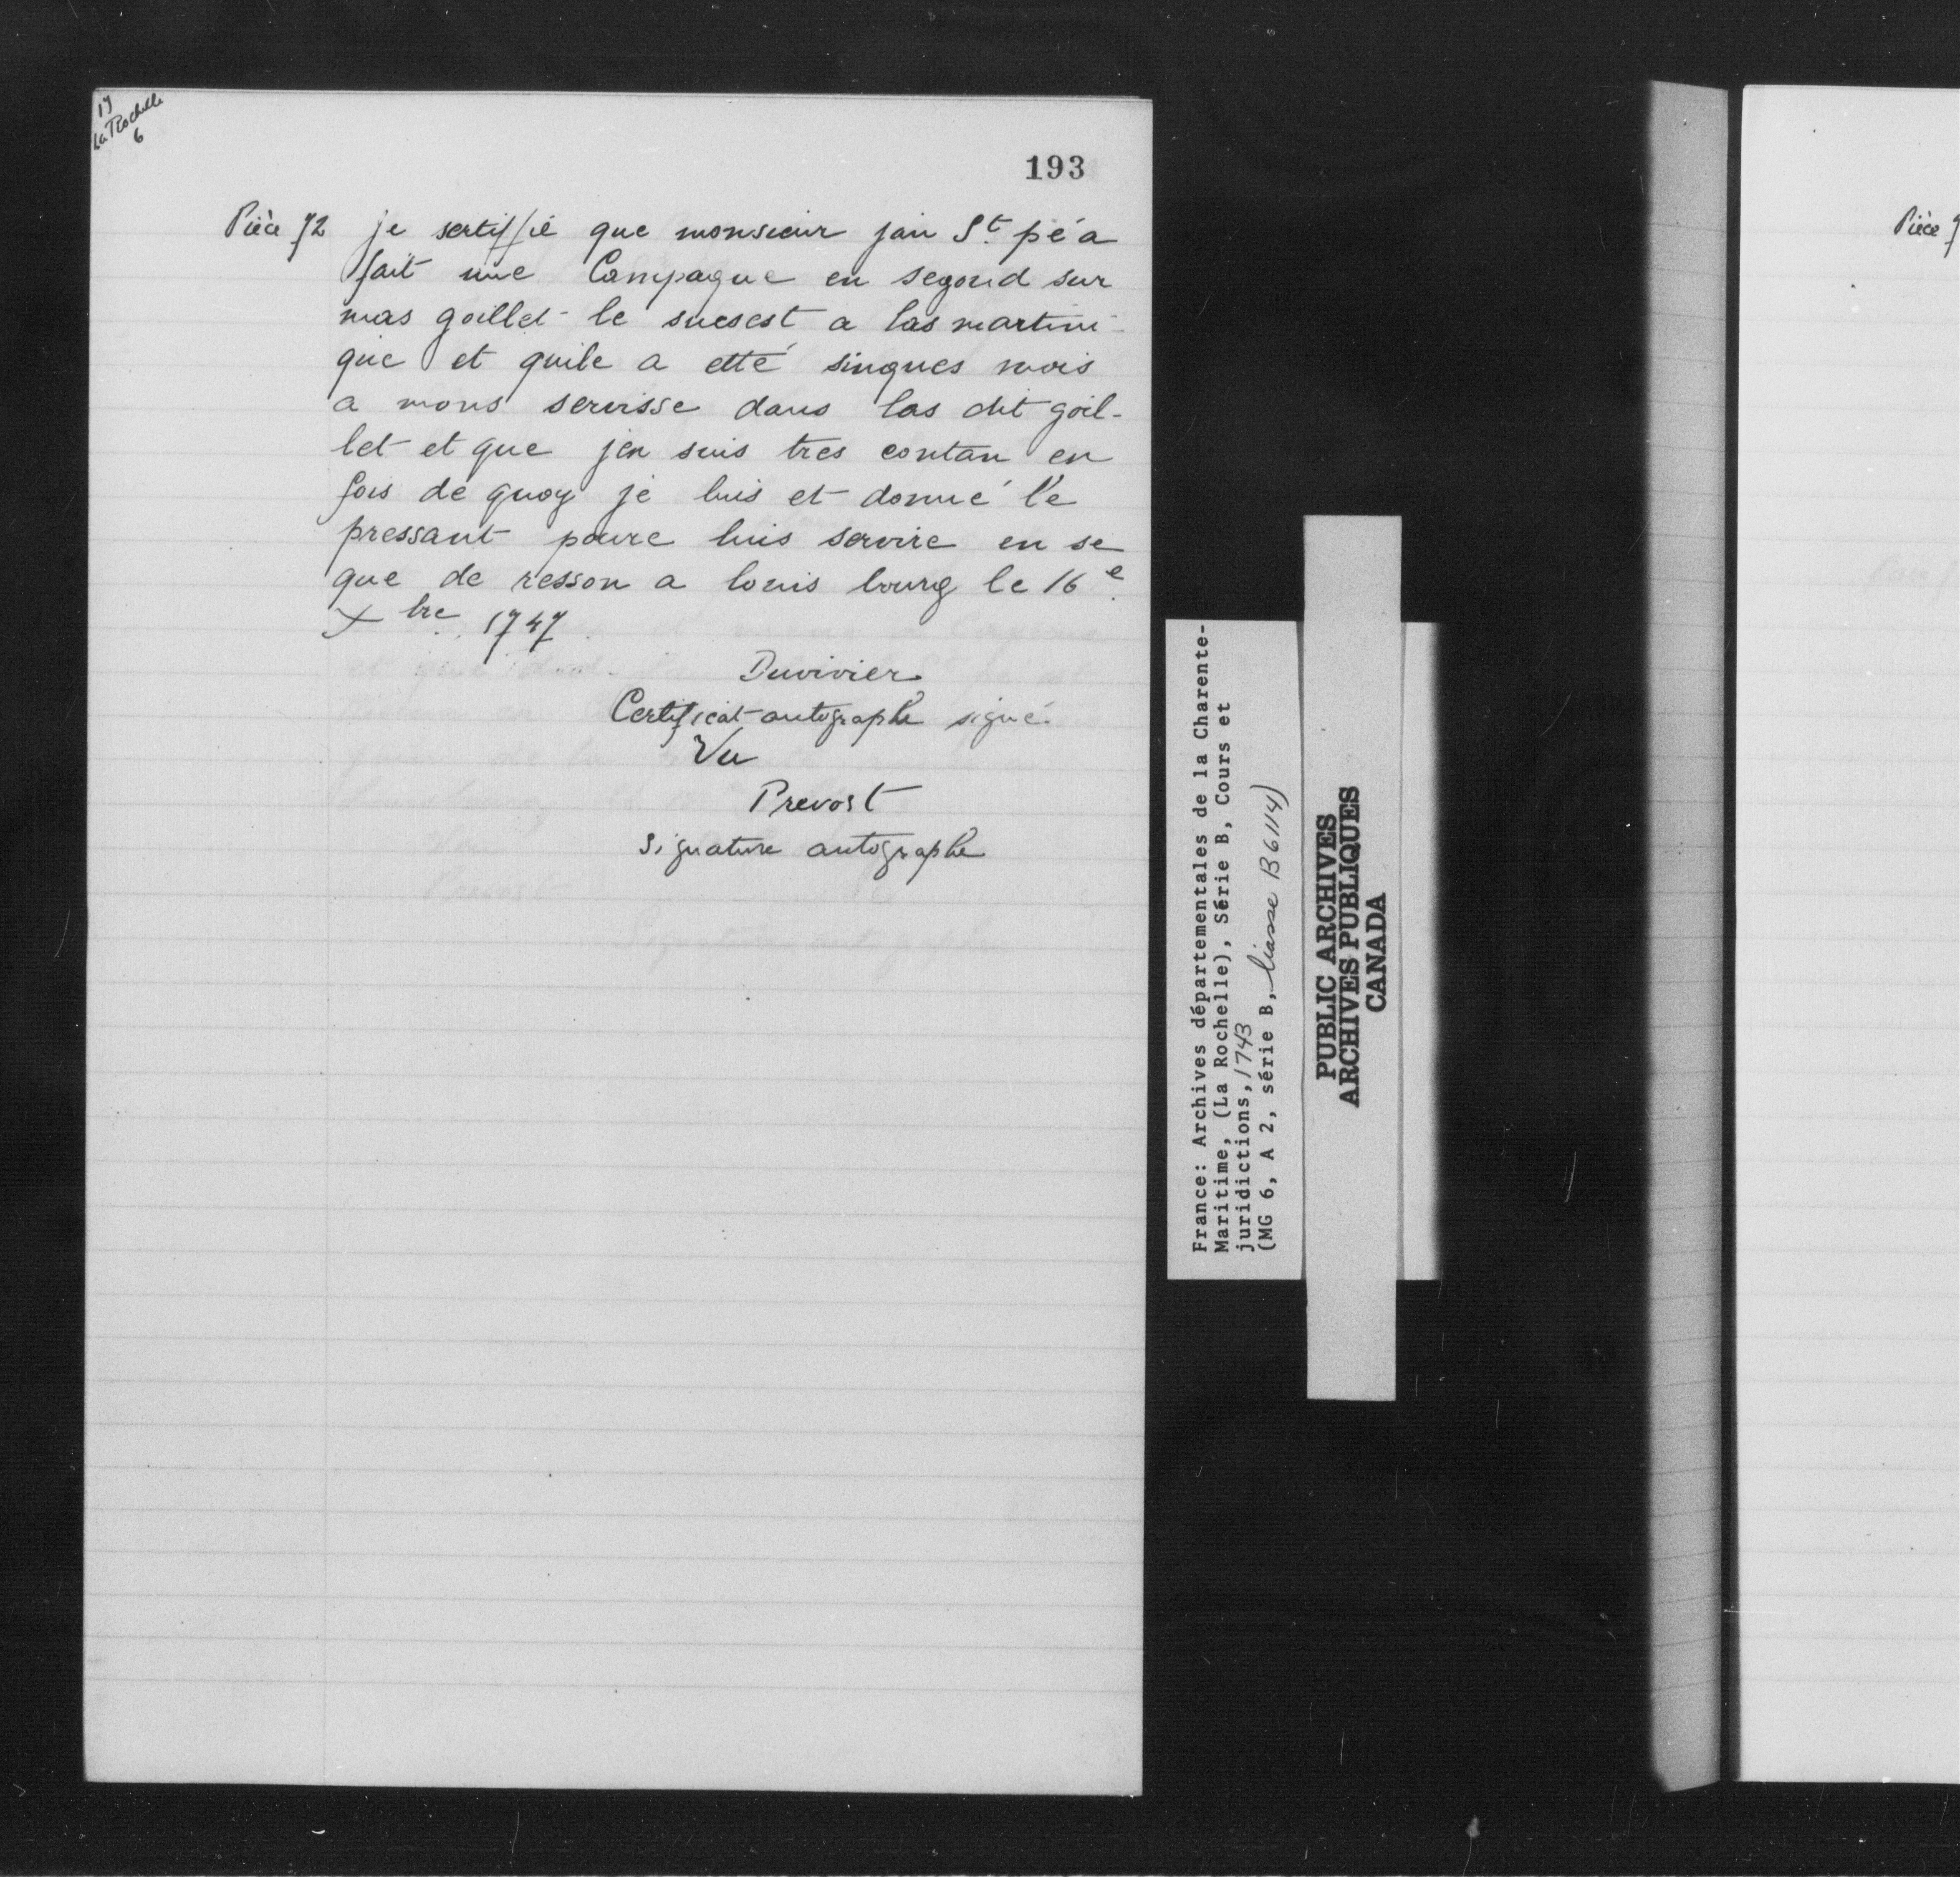 17
La Rochelle
6
193
Pièce 72 je sertiffié que monsieur jan St. pé a
fait une Campagne en segond sur
mas goillet le sucsest a las martini-
que et quile a etté singues mois
a mons servisse dans las dit goil-
let et que jen suis tres contan en
fois de quoy je luis et donné le
pressant poure luis servire en se
que de resson a louis bourg le 16e
Xbre 1747
Duvivier
Certificat autographe signé.
Vu
Prevost
Signature autographe
France: Archives départementales de la Charente-
Maritime, (La Rochelle), Série B, Cours et
juridictions, 1743
(MG 6, A 2, série B, liasse B 6114)
PUBLIC ARCHIVES
ARCHIVES PUBLIQUES
CANADA
Pièce